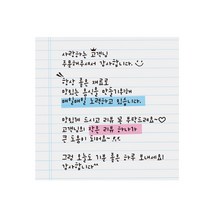 사랑하는 고객님
주문해주셔서 감사합니다.
항상 좋은 재료로
맛있는 음식을 만들기위해
매일매일 노력하고 있습니다.
맛있게 드시고 리뷰 꼭 부탁드려요~♡
고객님의 작은 리뷰 하나가
큰 도움이 되어요~ ★★
그럼 오늘도 기분 좋은 하루 보내세요!
감사합니다^^